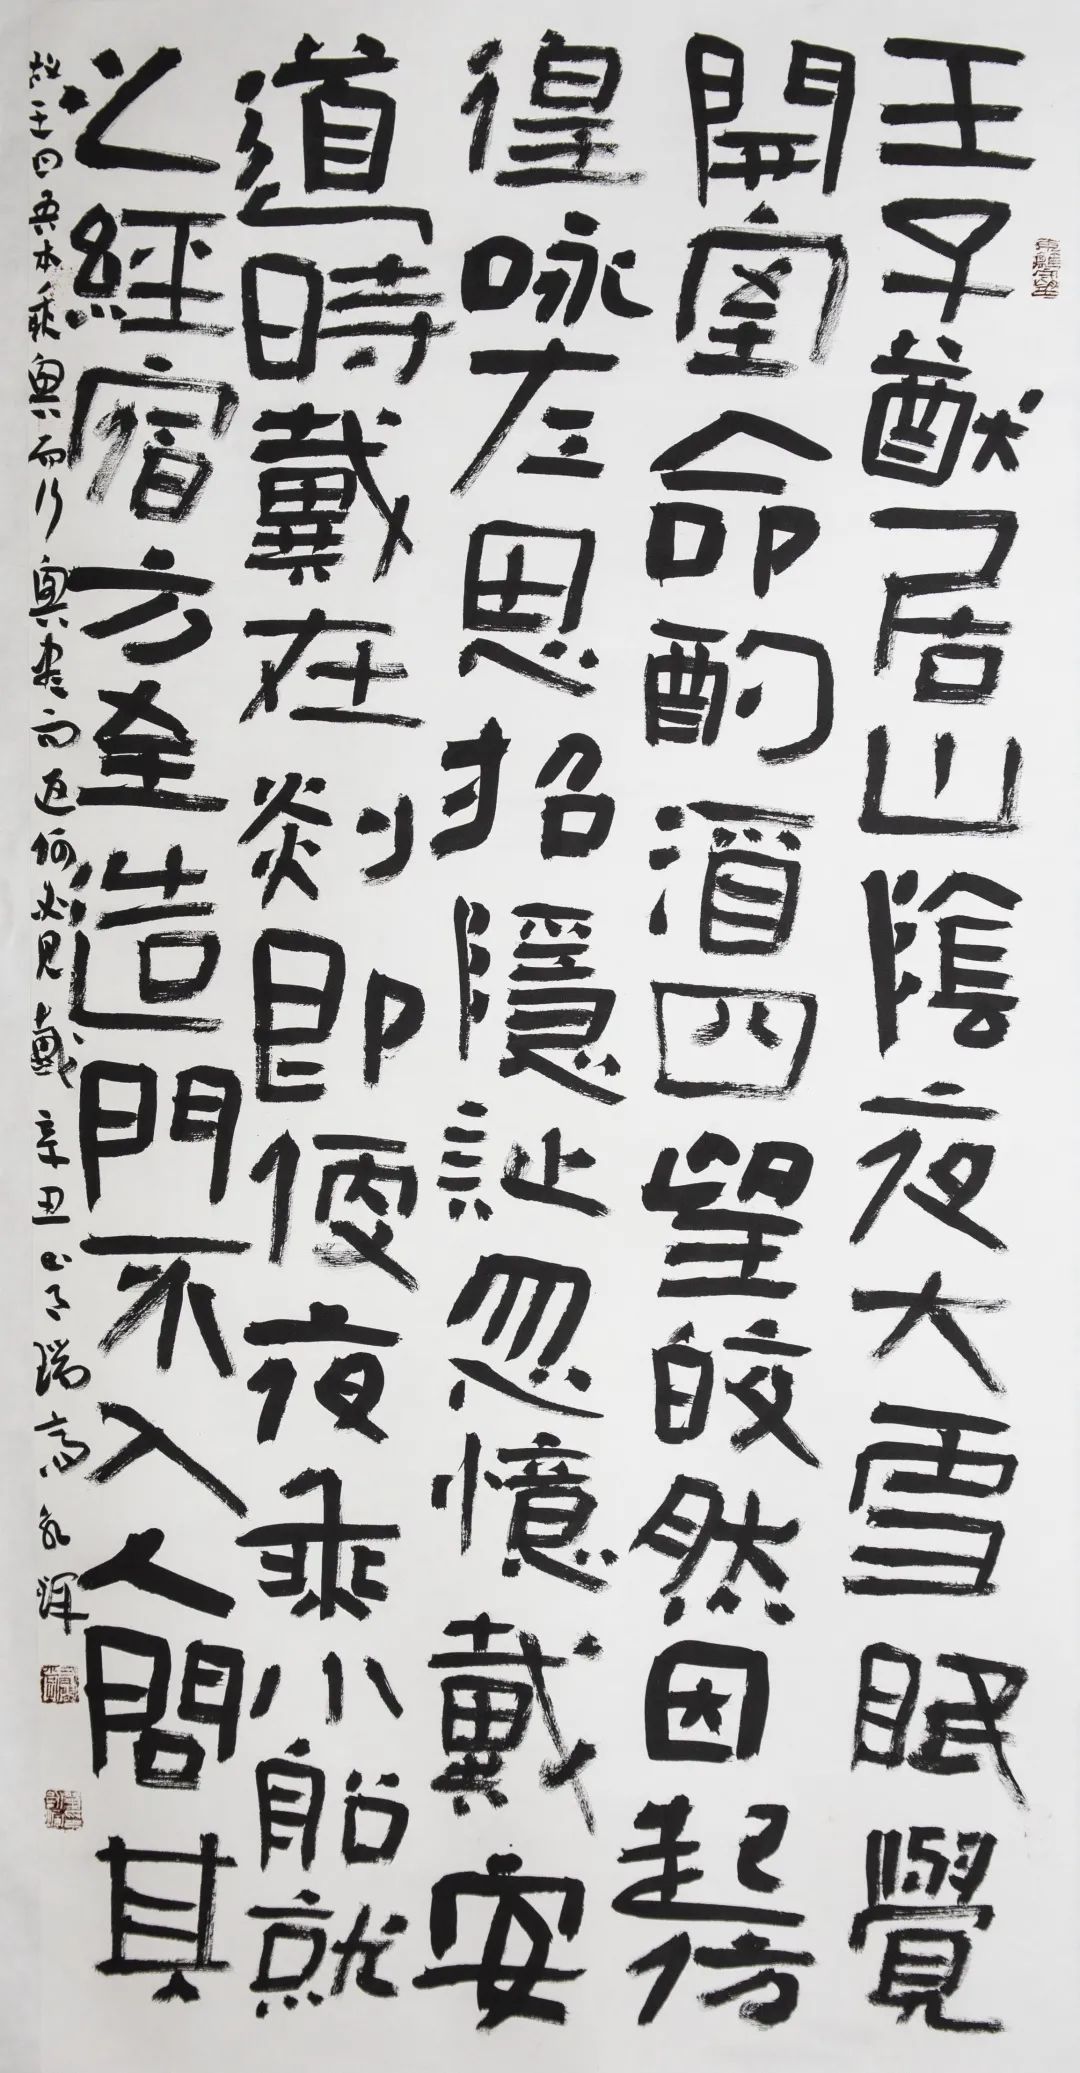 王子猷居山陰夜大雪眠覺
開室命酌酒四望皎然因起彷
徨咏左思招隱詩忽憶戴安
道時戴在剡即便夜乘小船就
之經宿方至造門不入人問其
故王曰吾本乘興而行興盡而返何必見戴 辛丑 瑞高永